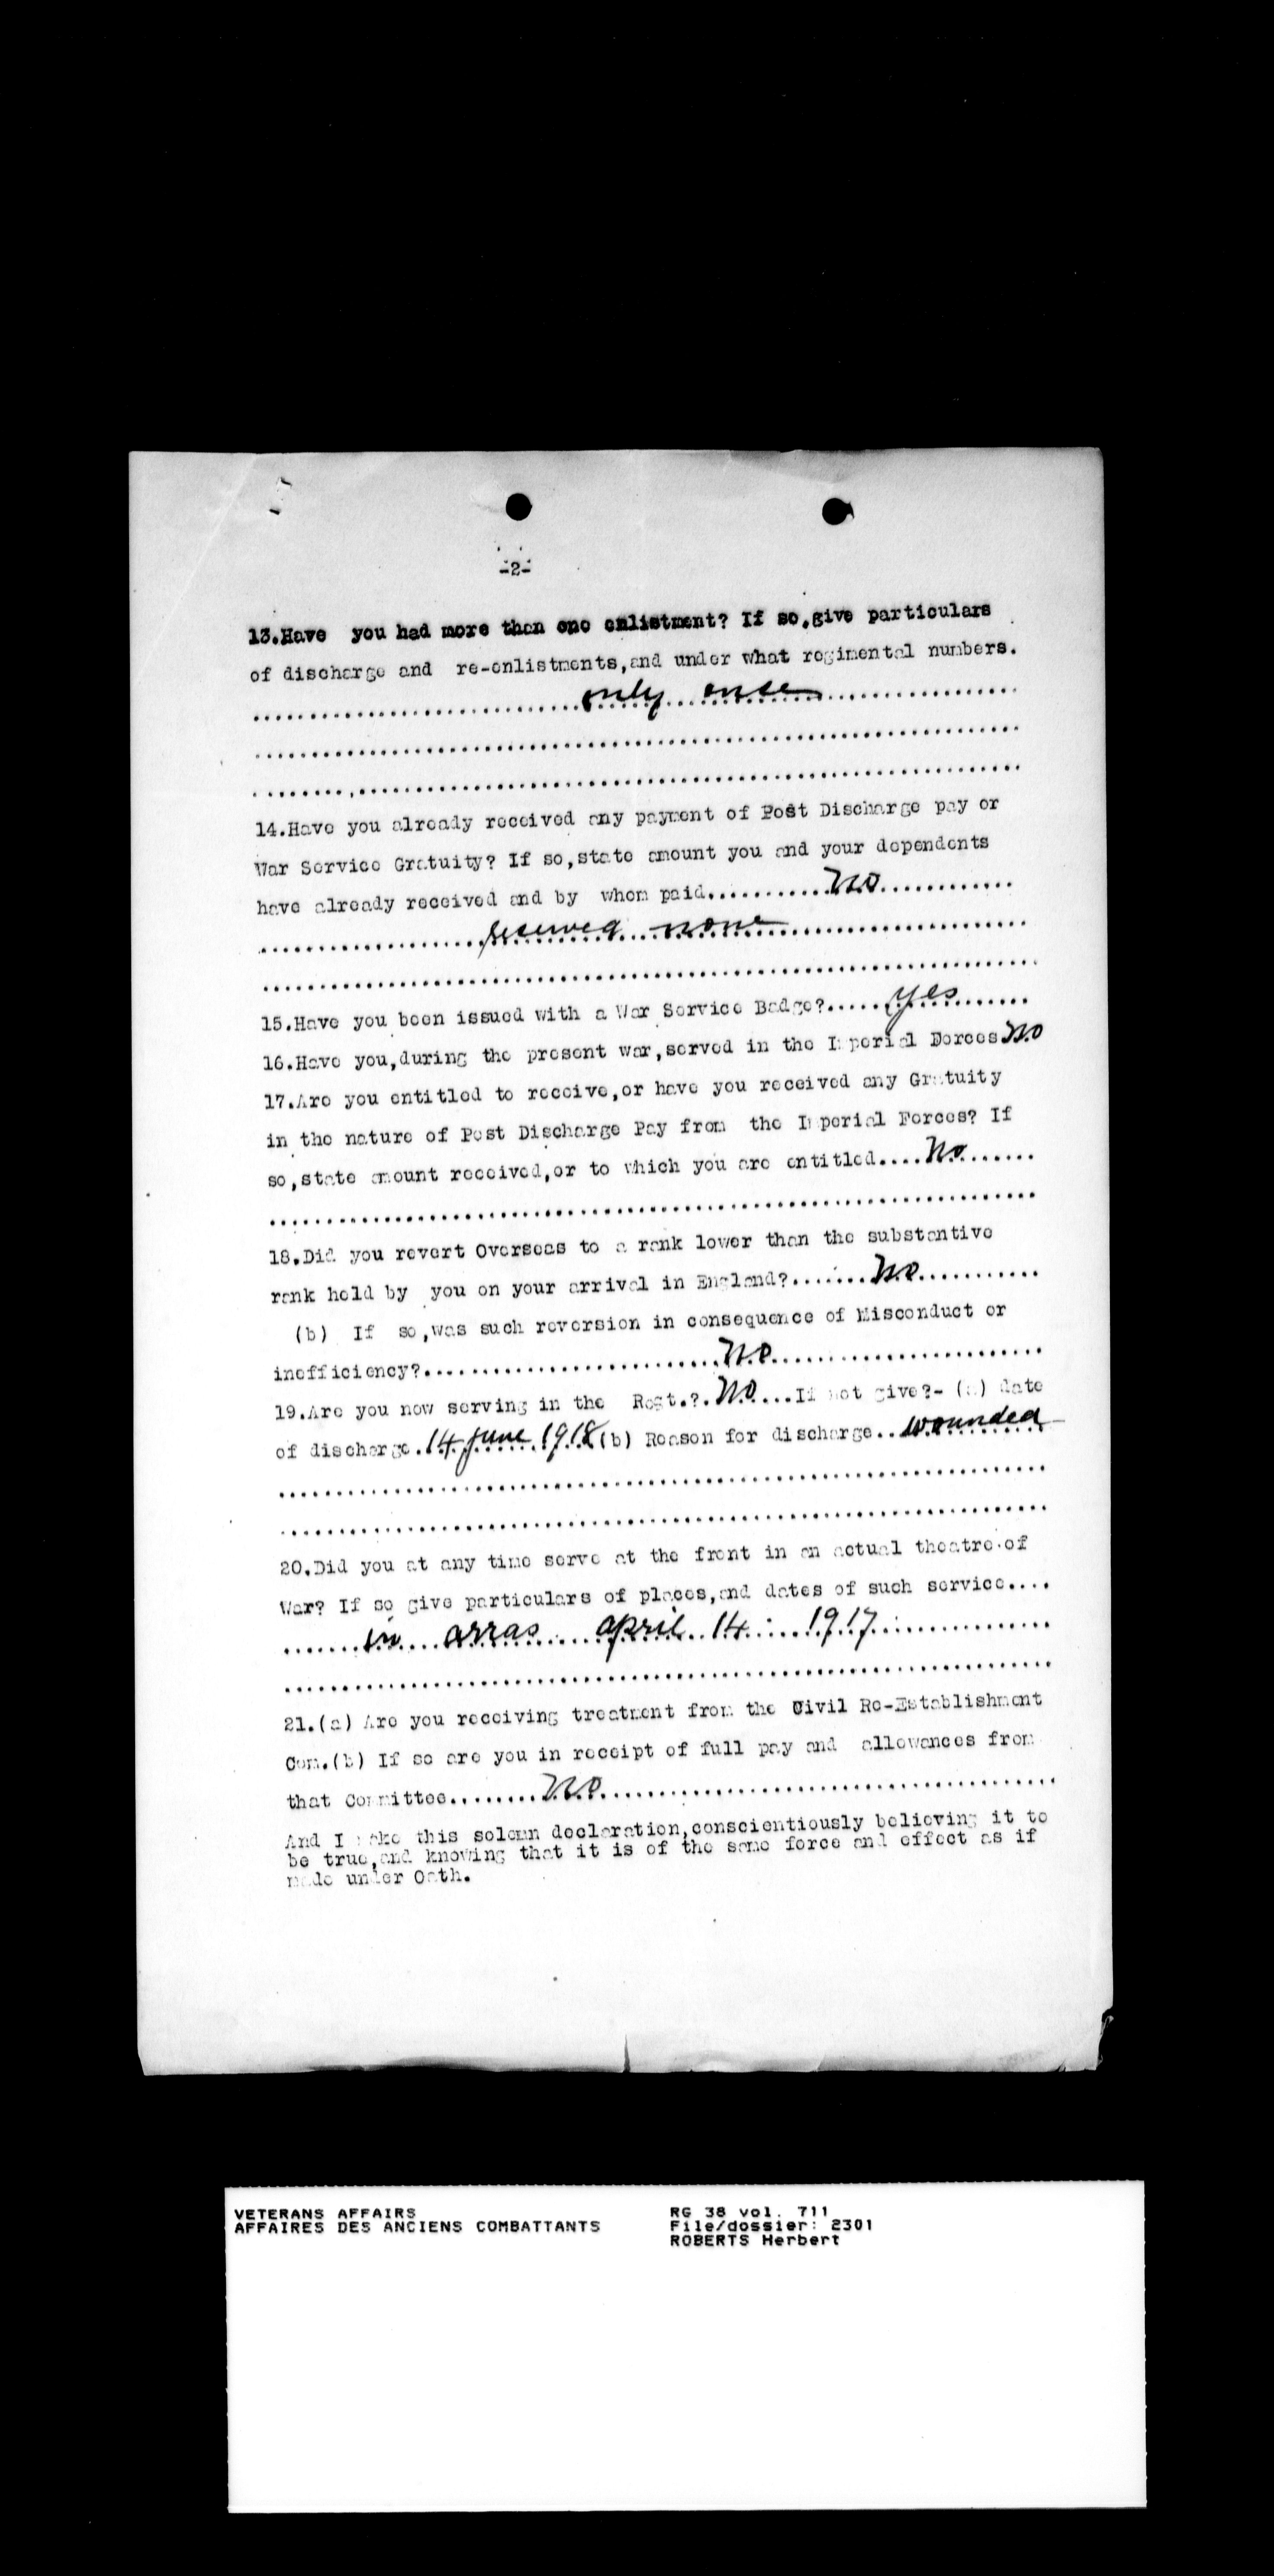 -2-
13.Have you had more than one enlistment? If so,give particulars
of discharge and re-enlistments,and under what regimental numbers.
only once
14.Have you already received any payment of Post Discharge pay or
War Service Gratuity? If so,state amount you and your dependents
have already received and by whom paid...........no............
received none
15.Have you been issued with a War Service Badge?.....yes.......
16.Have you,during the present war,served in the Imperial Forces no
17.Are you entitled to receive,or have you received any Gratuity
in the nature of Post Discharge Pay from the Imperial Forces? If
so,state amount received,or to which you are entitled....No.......
18.Did you revert Overseas to a rank lower than the substantive
rank held by you on your arrival in England?.......No...........
(b) If so,was such reversion in consequence of Misconduct or
inefficiency?.........................No.......................
19.Are you now serving in the Regt.?.No....If not give?-(a) date
of discharge.14 June 1918(b) Reason for discharge..wounded
20.Did you at any time serve at the front in an actual theatre of
War? If so give particulars of places,and dates of such service....
in arras april 14 1917
21.(a) Are you receiving treatment from the Civil Re-Establishment
Com.(b) If so are you in receipt of full pay and allowances from
that Committee........No.......................................
And I make this solemn declaration,conscientiously believing it to
be true,and knowing that it is of the same force and effect as if
made under Oath.
VETERANS AFFAIRS
AFFAIRES DES ANCIENS COMBATTANTS
RG 38 vol. 711
File/dossier: 2301
ROBERTS Herbert